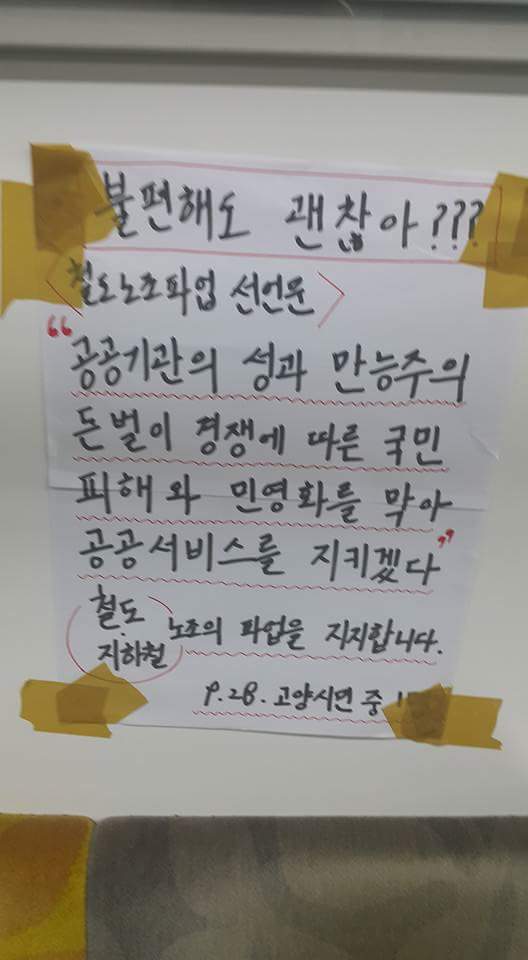 불편해도 괜찮아???
철도노조파업 선언문
“공공기관의 성과 만능주의
돈벌이 경쟁에 따른 국민
피해와 민영화를 막아
공공서비스를 지키겠다”
철도·
지하철 노조의 파업을 지지합니다.
9.28. 고양시민 중